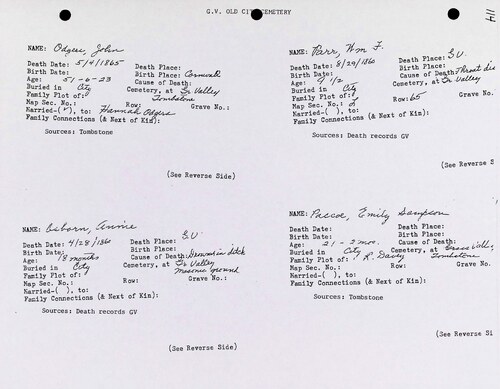 G.V. OLD CITY CEMETERY
114
NAME: Odgers, John
Death Date: 5/4/1865 Death Place:
Birth Date: Birth Place: Cornwall
Age: 51-6-23 Cause of Death:
Buried in City Cemetery, at Gr Valley
Family Plot of: Tombstone
Map Sec. No.: Row: Grave No.:
Married-(✓), to: Hannah Odgers
Family Connections (& Next of Kin):
Sources: Tombstone
(See Reverse Side)
NAME: Parr, Wm F.
Death Date: 8/29/1860 Death Place: G.V.
Birth Date: Birth Place:
Age: 9 1/2 Cause of Death: Throat dis
Buried in City Cemetery, at Gr Valley
Family Plot of:
Map Sec. No.: Row: 65 Grave No.
Married-( ), to:
Family Connections (& Next of Kin):
Sources: Death records GV
(See Reverse S
NAME: Annie
Death Date: 4/28/1860 Death Place: G.V.
Birth Date: Birth Place:
Age: 18 months Cause of Death: Drowned in ditch
Buried in City Cemetery, at Gr Valley
Family Plot of: Masonic ground
Map Sec. No.: Row: Grave No.:
Married-( ), to:
Family Connections (& Next of Kin):
Sources: Death records GV
(See Reverse Side)
NAME: Pascoe, Emily Sampson
Death Date: Death Place:
Birth Date: Birth Place:
Age: 21 - 2 mos. Cause of Death:
Buried in City Cemetery, at Grass Valley
Family Plot of: R. Davey Tombstone
Map Sec. No.: Row: Grave No.
Married-( ), to:
Family Connections (& Next of Kin):
Sources: Tombstone
(See Reverse Si